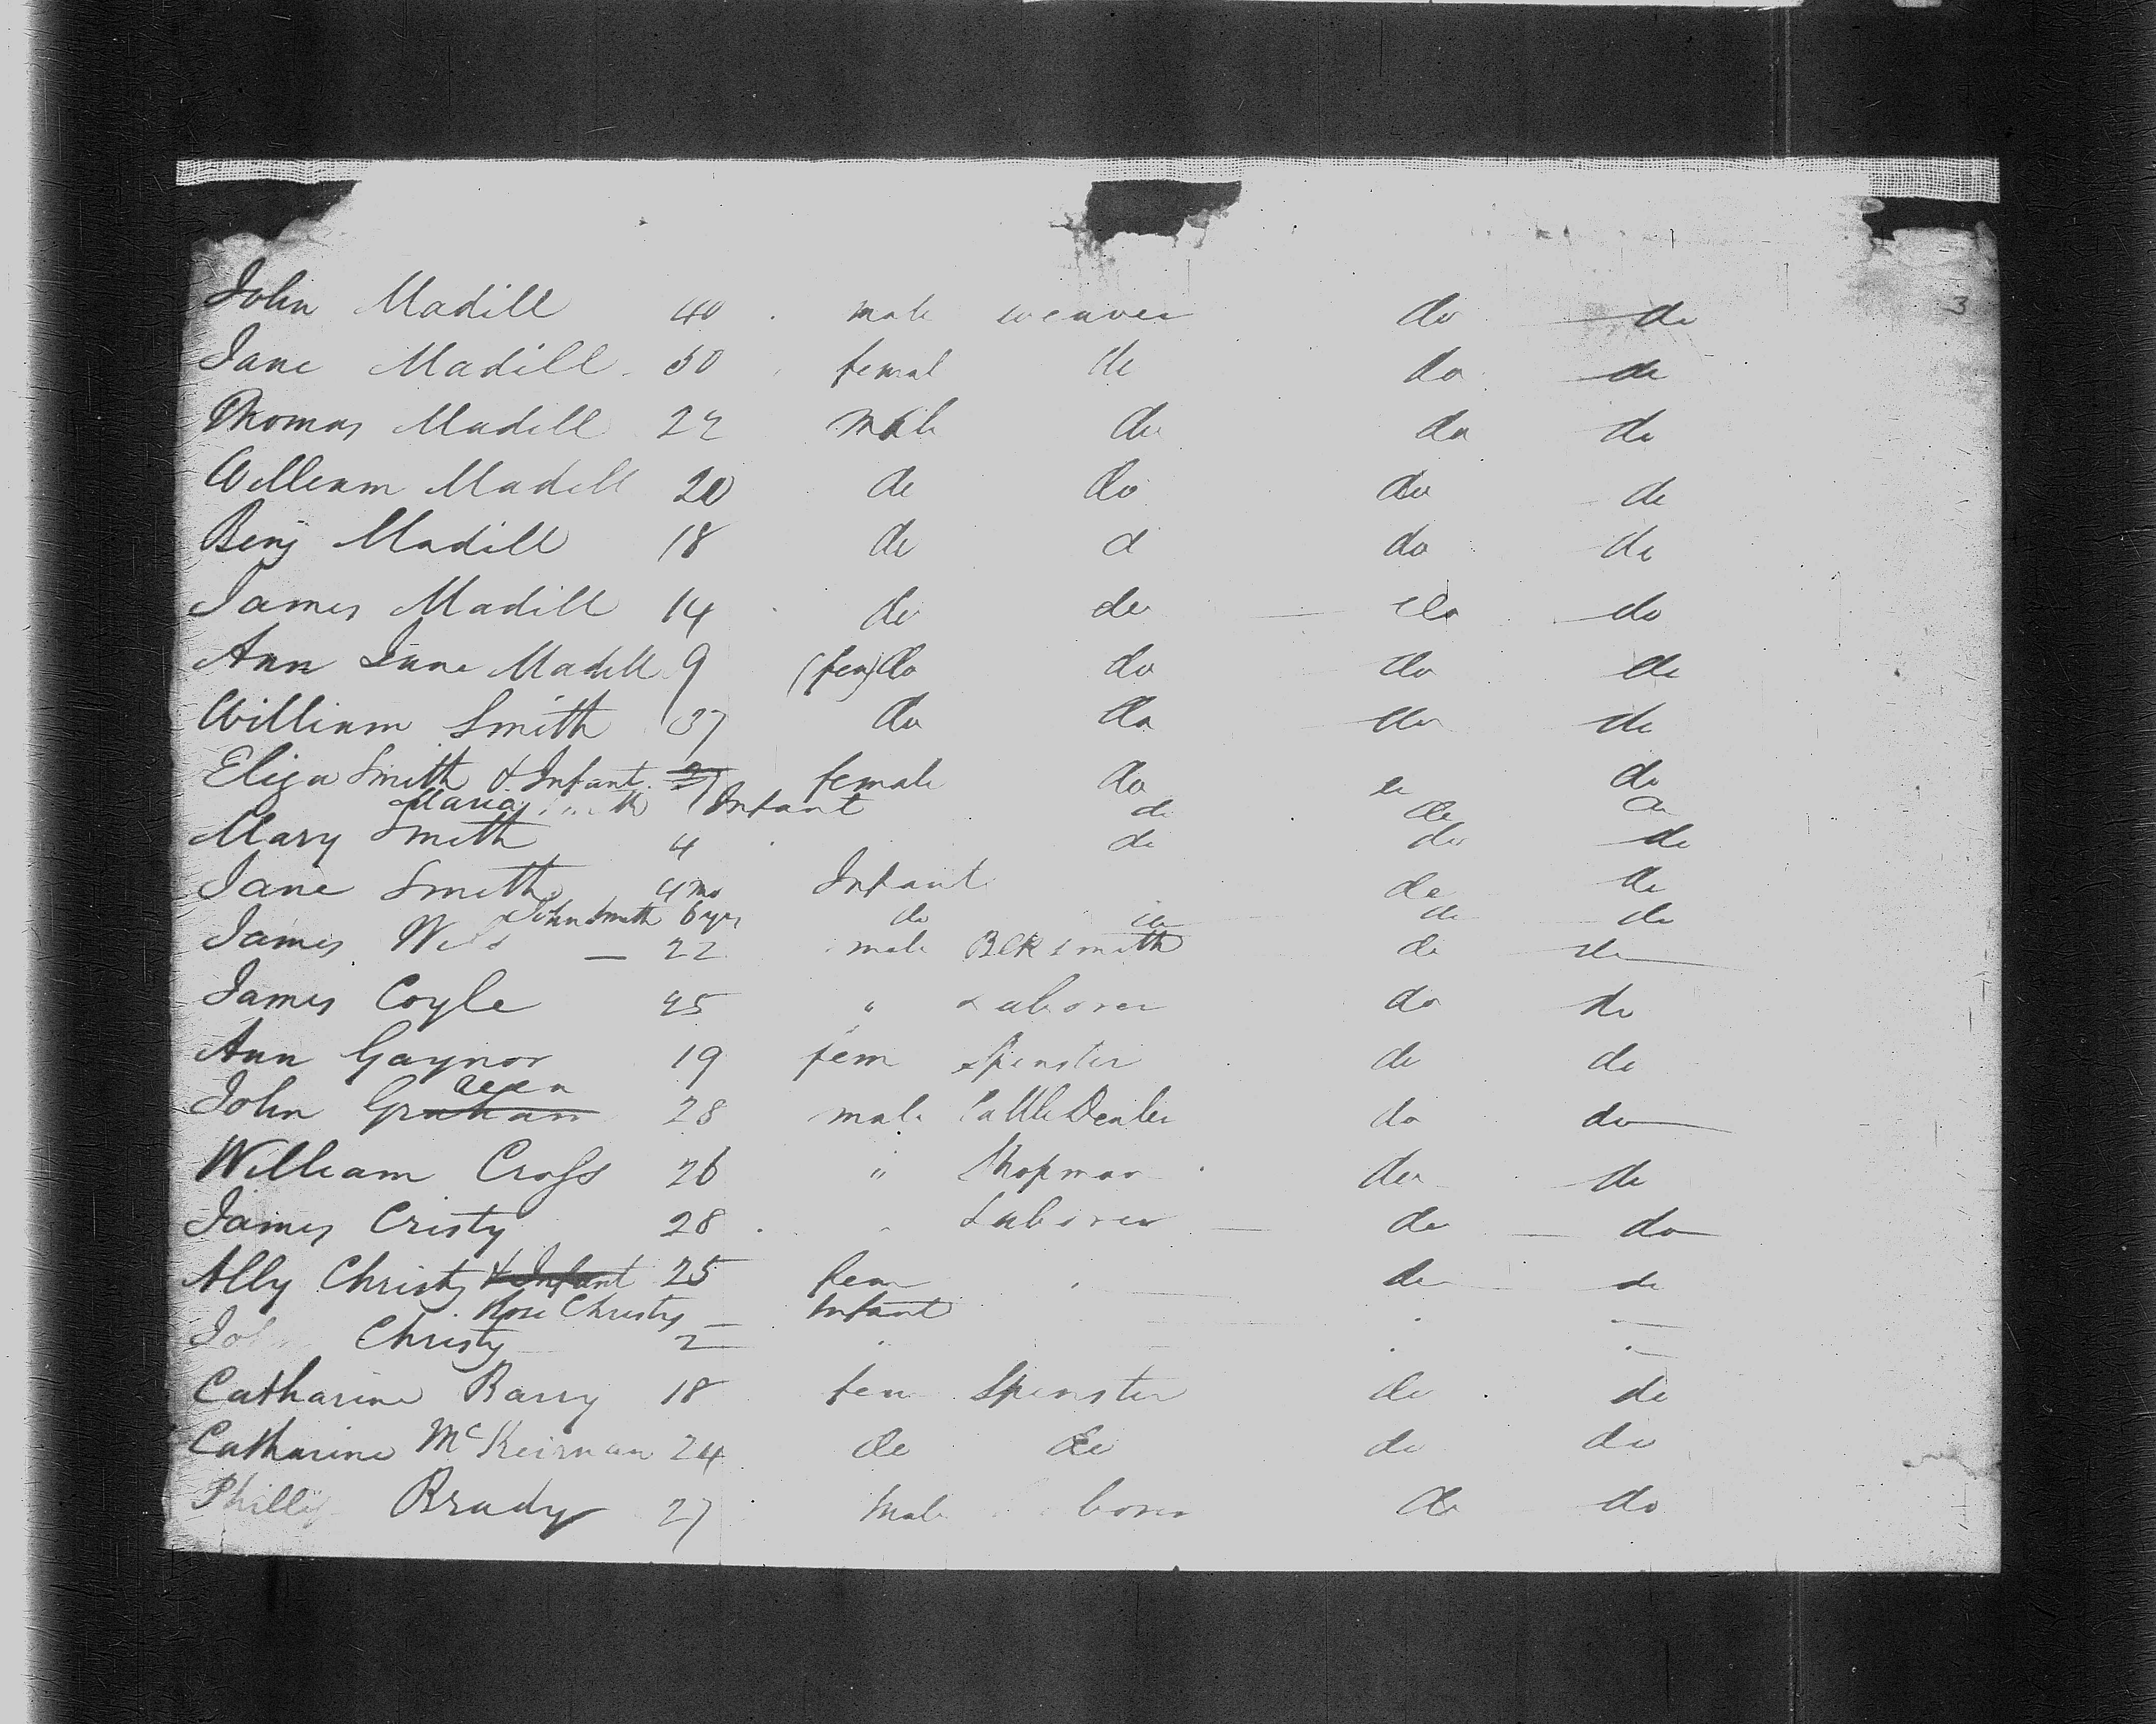 3
John Madill 40 male weaver do do
Jane Madill 50 femal do do do
Thomas Madill 22 male do do do
William Madill 20 do do do do
Benj Madill 18 do d do do
James Madill 14 do do do do
Ann Jane Madill 9 (fem) do do do do
William Smith 37 do do do do
Eliza Smith & Infant 27 female do do do
Maria Infant do do do
Mary Smith 4 do do do
Jane Smith 4 mo Infant do do
John Smith 6 yrs do do do do
James 22 male Blksmith do do
James Coyle 45 " Laborer do do
Ann Gaynor 19 fem Spinster do do
John Graham 28 male Cattle Dealer do do
William Cross 26 " Shopman do do
James Cristy 28 Laborer do do
Ally Christy & Infant 25 fem do do
Rose Christy Infant
Christy 2 "
Catharine Barry 18 fem Spinster do do
Catharine McKeirnan 24 do do do do
Phillip Brady 27 Male do do